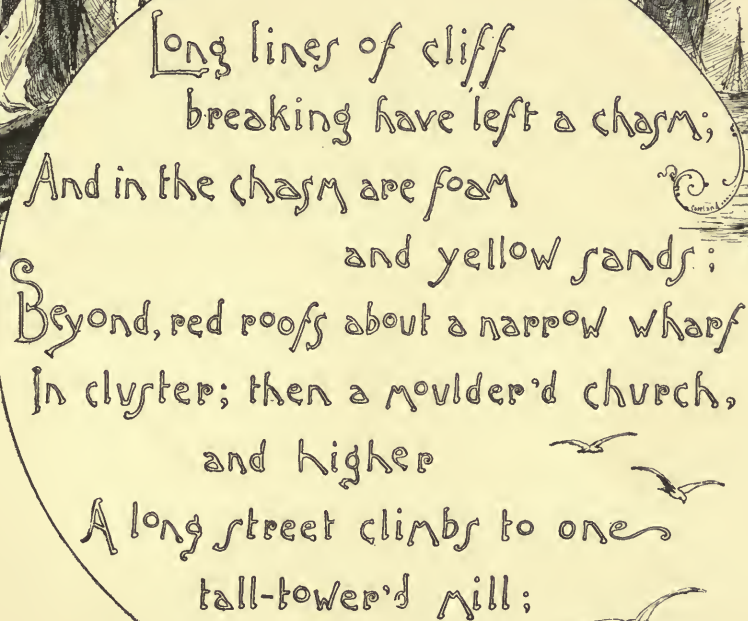 Long lines of cliff
breaking have left a chasm;
And in the chasm are foam
and yellow sands;
Beyond, red roofs about a narrow wharf
In cluster; then a moulder'd church,
and higher
A long street climbs to one
tall-tower'd mill;